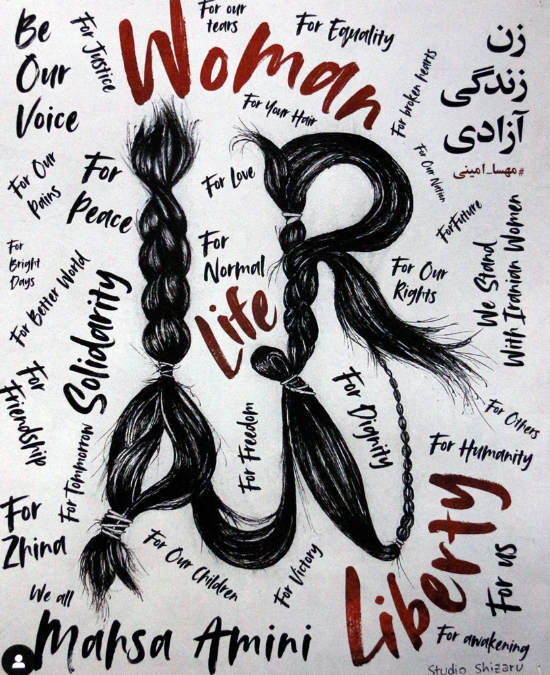 Be
Our
Voice
For Justice
Woman
For our
tears
For Equality
For Your Hair
For broken hearts
زن
زندگی
آزادی
#مهسا_امینی
For Our
Pains
For
Peace
For Love
For Our Nation
For Future
For
Bright
Days
For Better World
Solidarity
For
Normal
Life
For Our
Rights
We Stand
With Iranian Women
For
Friendship
For Tommorrow
For Freedom
For Dignity
For Others
For Humanity
For
Zhina
For Our Children
For Victory
Liberty
For us
We all
Mahsa Amini
For awakening
Studio Shizaru